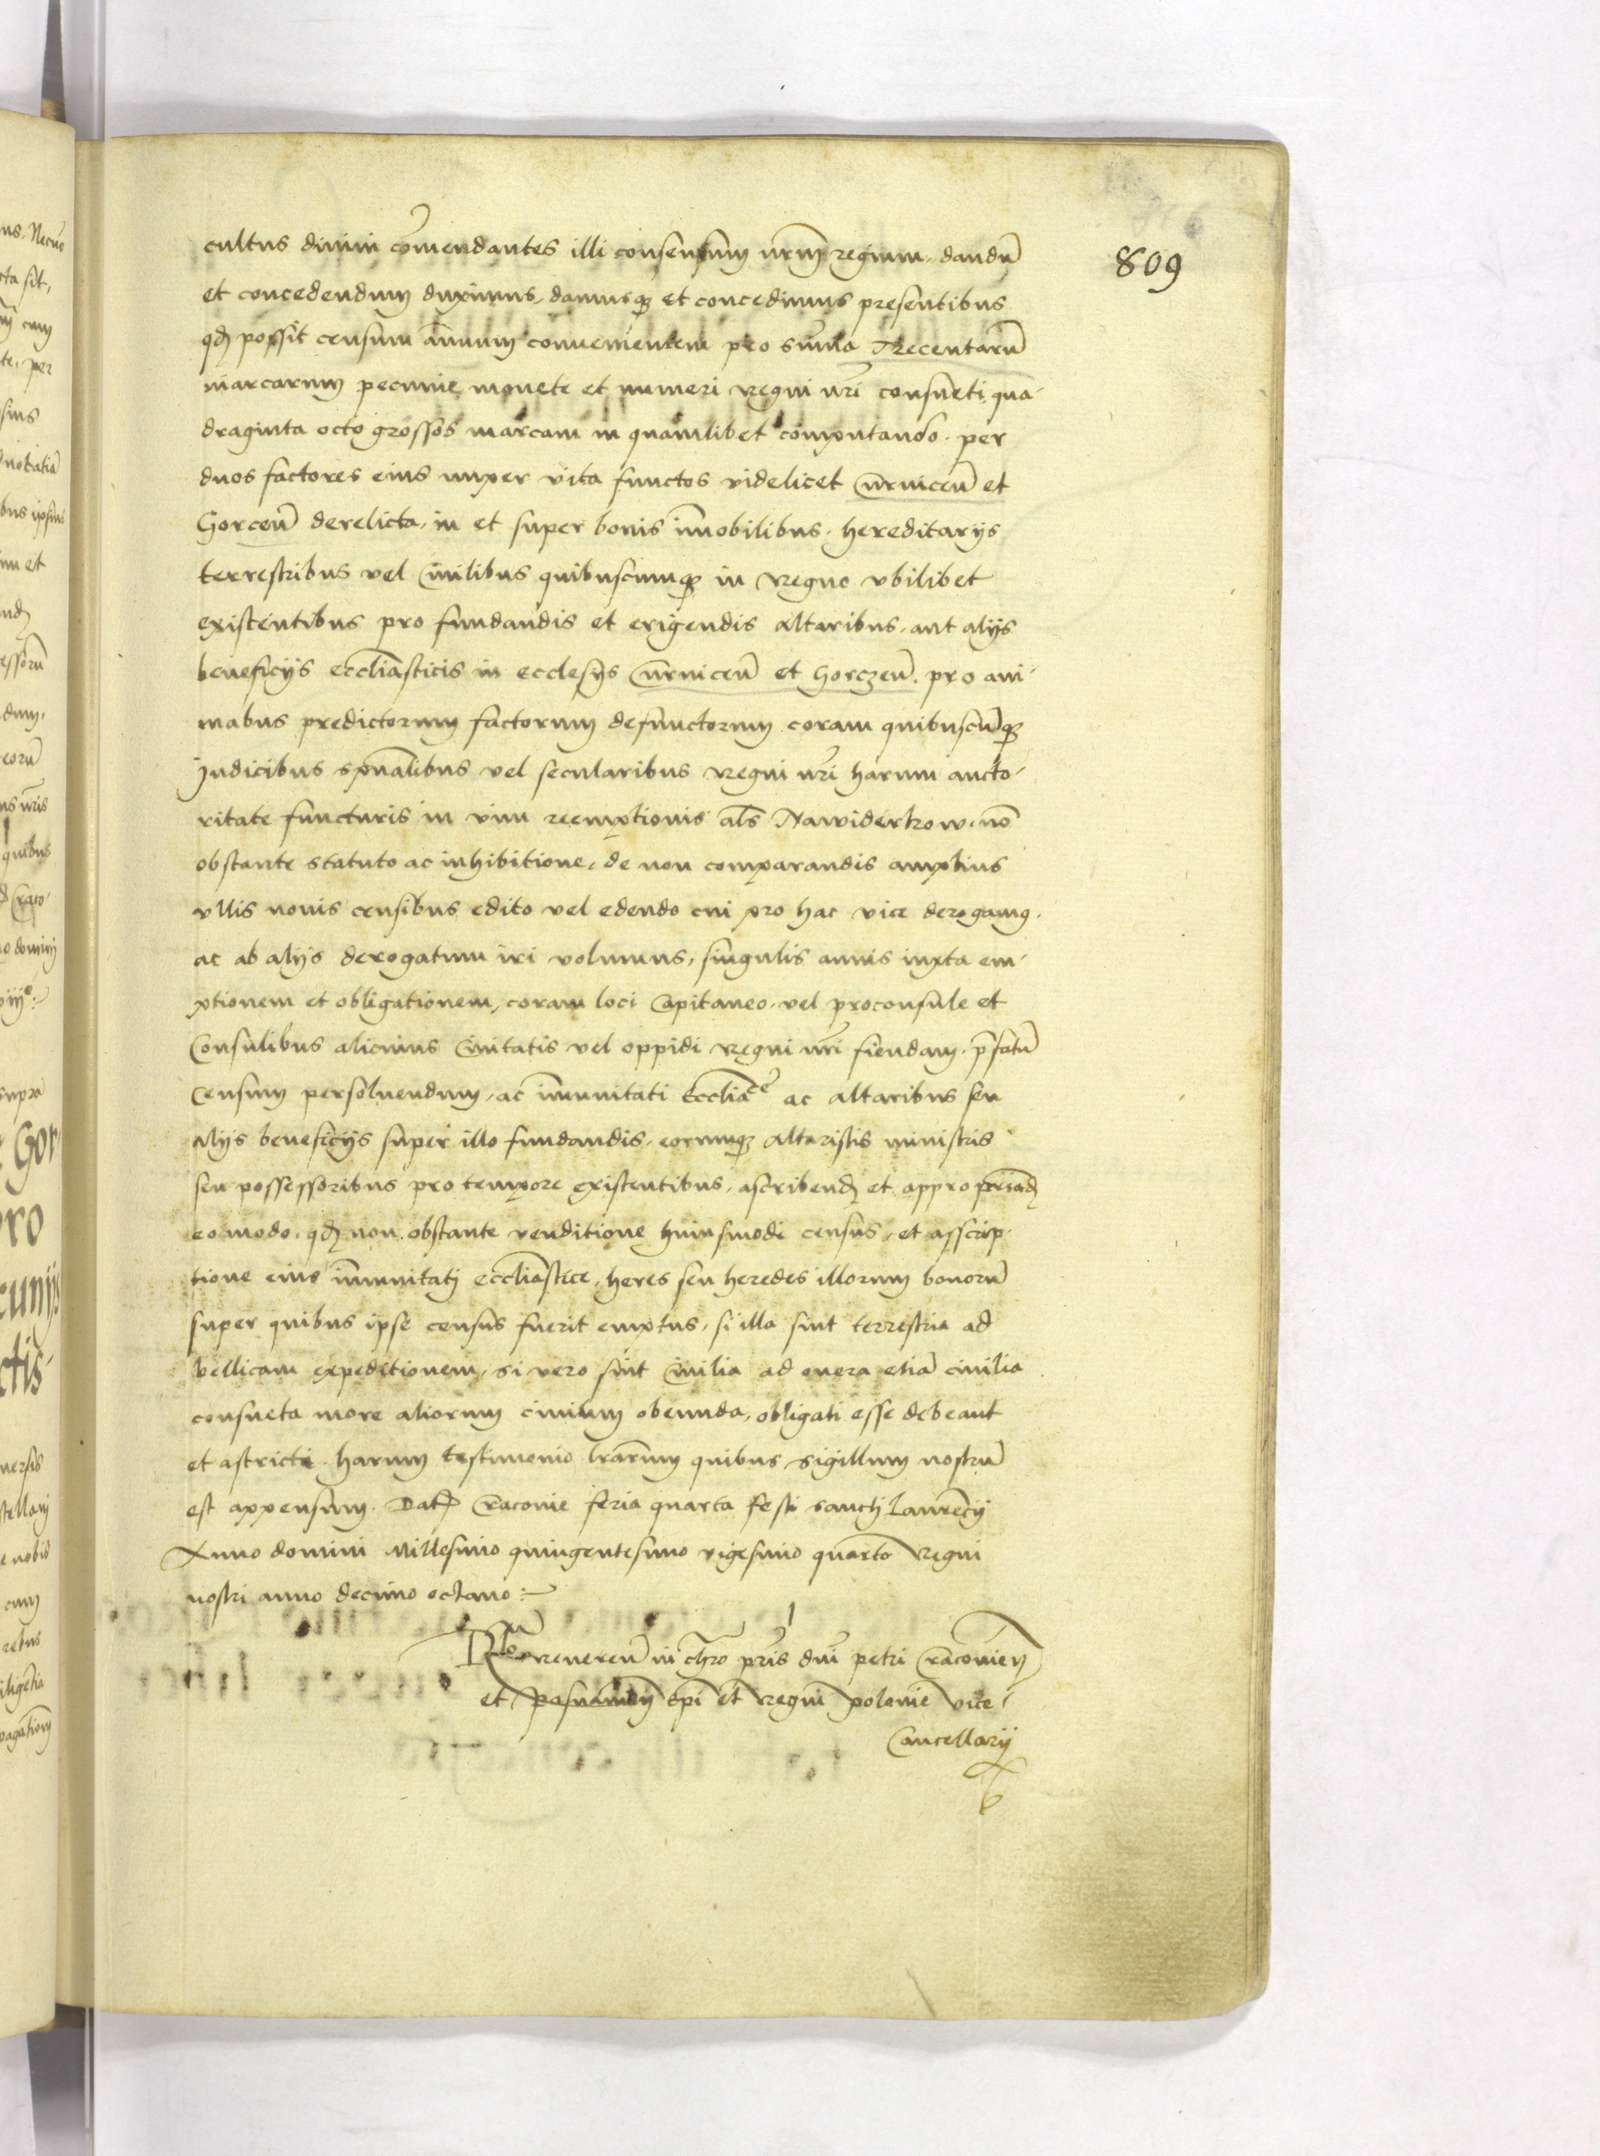 809
cultus diuini com̄endantes illi consensum nr̄m regium, dandū
et concedendum duximus, damusq; et concedimus presentibus
qđ possit censum annuum conuenientem pro sum̄a Trecentarū
marcarum pecunie, monete et numeri Regni nr̄i consueti, qua-
draginta octo grossos marcam in quamlibet computando. per
duos factores eius nuper vita functos videlicet Curnicen̄ et
Gorcen̄ derelicta, in et super bonis im̄obilibus, hereditarijs
terrestribus vel Ciuilibus quibuscumq; in Regno vbilibet
existentibus pro fundandis et erigendis altaribus, aut alijs
beneficijs ecclīasticis in ecclesijs Curnicen̄ et Gorczen̄. pro ani-
mabus predictorum factorum defunctorum coram quibuscūq;
Judicibus spūalibus vel secularibus Regni nr̄i harum aucto-
ritate functuris in vim reemptionis al̄s Nawiderkow, nō
obstante statuto ac inhibitione, de non comparandis amplius
vllis nouis censibus edito vel edendo cui pro hac vice derogamꝰ
ac ab alijs derogatum iri volumus, singulis annis iuxta em-
ptionem et obligationem, coram loci Capitaneo, vel proconsule et
Consulibus alicuius Ciuitatis vel oppidi Regni nr̄i fiendam, p̄fatū
Censum persoluendum, ac im̄unitati Ecclīaᶜᵉ ac altaribus seu
alijs beneficijs super illo fundandis, eorumq; altaristis ministris
seu possessoribus pro tempore existentibus, ascribenđ et appropriand̄
eo modo, qđ non obstante venditione huiusmodi census, et asscrip-
tione eius im̄unitati ecclīastice, heres seu heredes illorum bonorū
super quibus ipse census fuerit emptus, si illa sint terrestria ad
bellicam expeditionem, si vero sint Ciuilia ad onera etiā ciuilia
consueta more aliorum ciuium obeunda, obligati esse debeant
et astricti. harum testimonio lr̄arum quibus sigillum nostrū
est appensum. Dat̄ Cracouie feria quarta festi sancti Laurēcij
Anno domini Millesimo quingentesimo vigesimo quarto Regni
nostri anno decimo octauo:
Rela reueren̄ in chr̄o pr̄is dn̄i petri Cracouien̄
et Posnanien̄ Epī et Regni polonie vice
Cancellarij